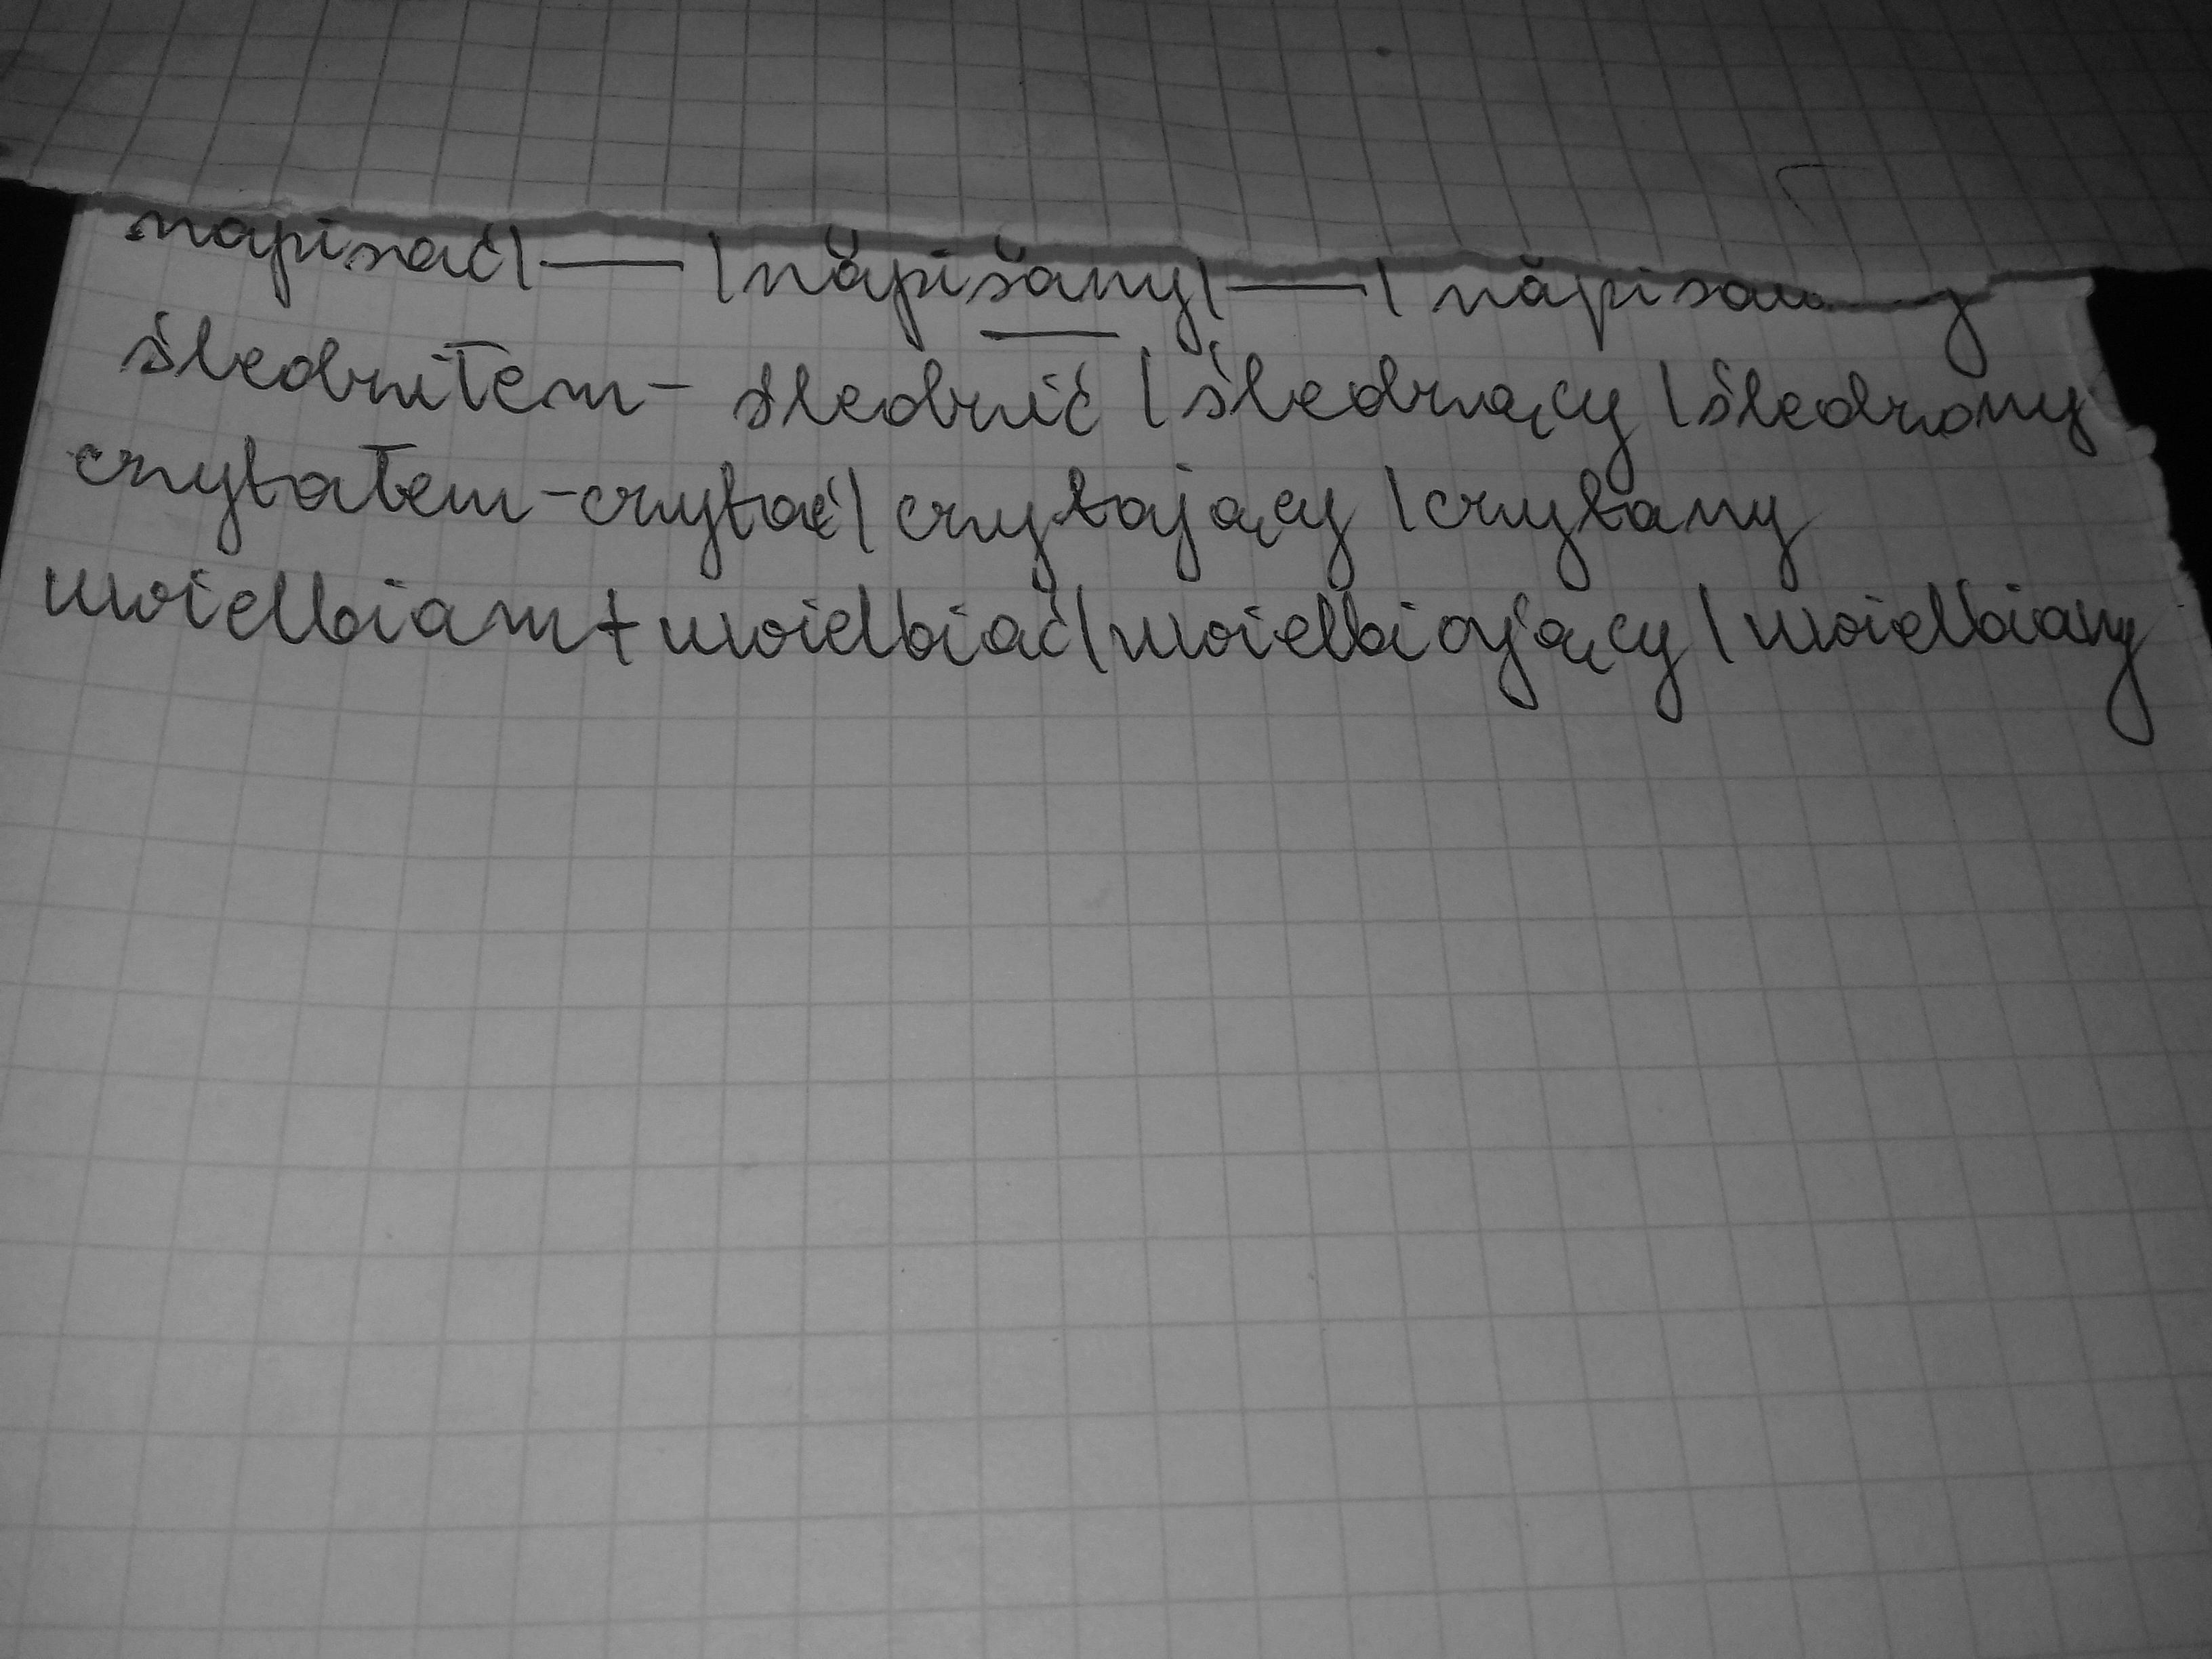 napisać | — | năpišany | — | năpisany
śledziłem - śledzić | śledzący | śledzony
czytałem - czytać | czytający | czytany
uwielbiam + uwielbiać | uwielbiający | uwielbiany